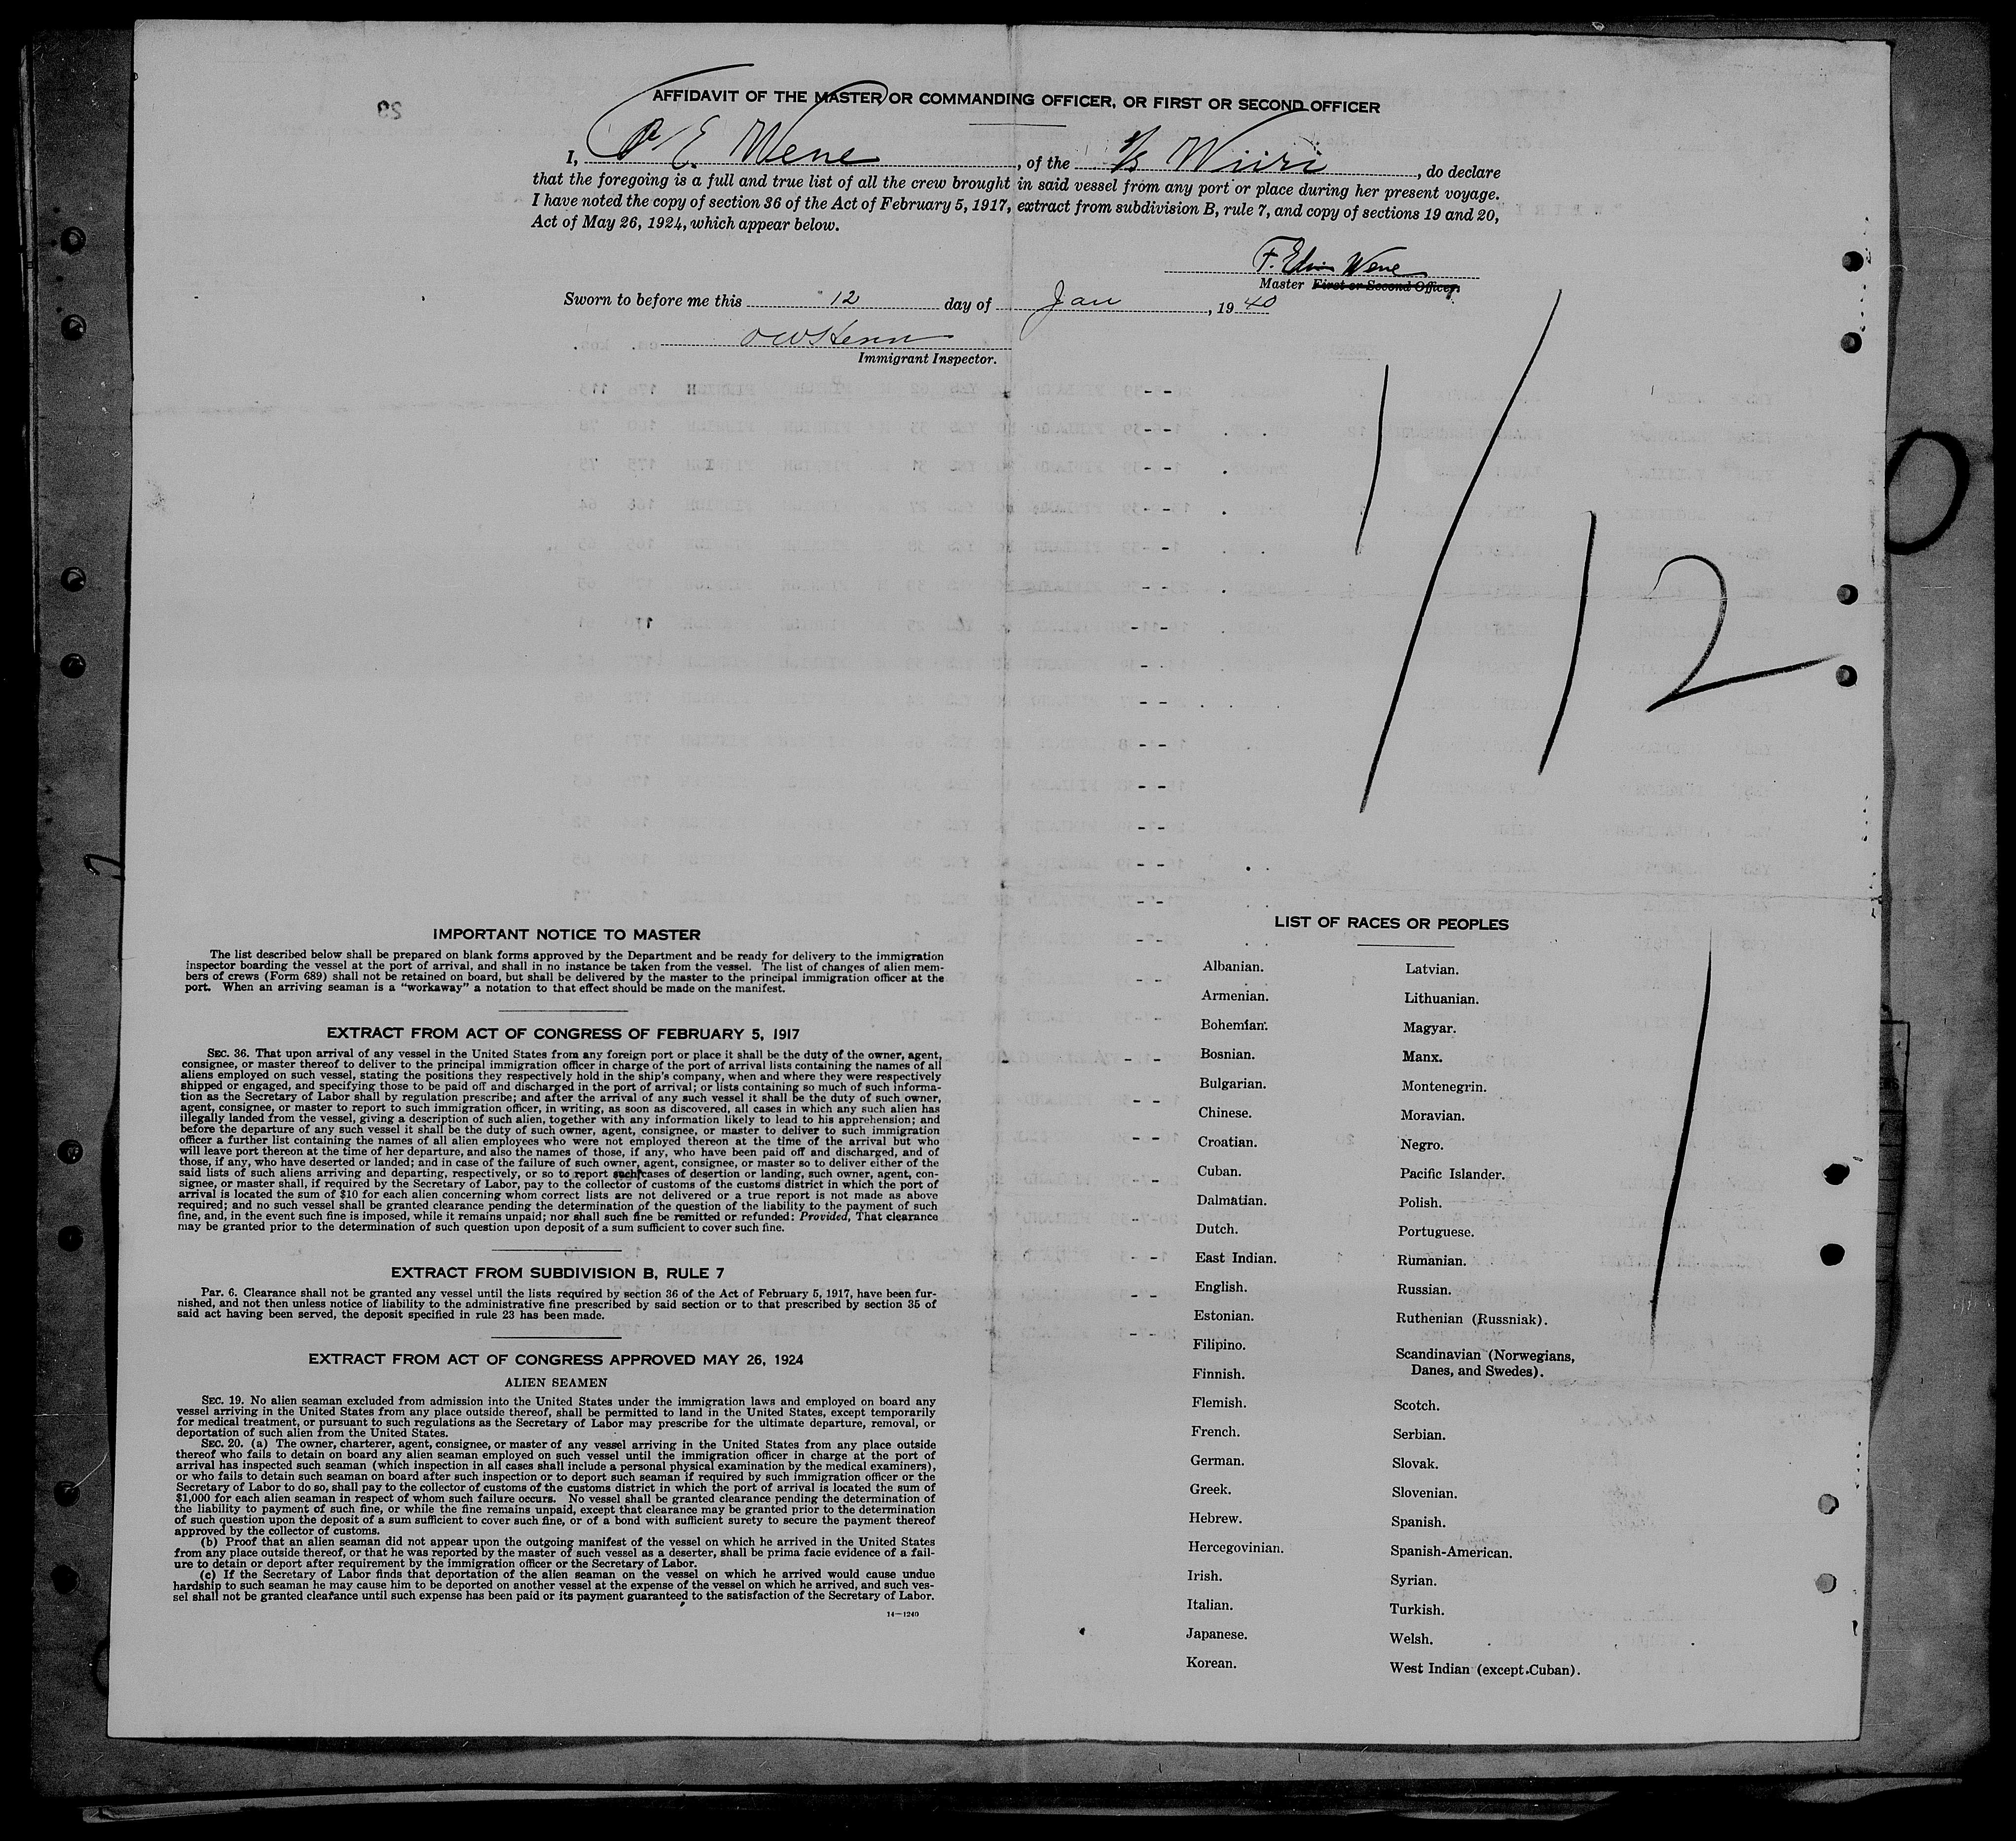 AFFIDAVIT OF THE MASTER OR COMMANDING OFFICER, OR FIRST OR SECOND OFFICER
I, E. Wene, of the S/S Wiiri, do declare
that the foregoing is a full and true list of all the crew brought in said vessel from any port or place during her present voyage.
I have noted the copy of section 36 of the Act of February 5, 1917, extract from subdivision B, rule 7, and copy of sections 19 and 20,
Act of May 26, 1924, which appear below.
F. Edvin Wene
Master First or Second Officer.
Sworn to before me this 12 day of Jan, 1940
Immigrant Inspector.
1/12
IMPORTANT NOTICE TO MASTER
The list described below shall be prepared on blank forms approved by the Department and be ready for delivery to the immigration
inspector boarding the vessel at the port of arrival, and shall in no instance be taken from the vessel. The list of changes of alien mem-
bers of crews (Form 689) shall not be retained on board, but shall be delivered by the master to the principal immigration officer at the
port. When an arriving seaman is a "workaway" a notation to that effect should be made on the manifest.
EXTRACT FROM ACT OF CONGRESS OF FEBRUARY 5, 1917
SEC. 36. That upon arrival of any vessel in the United States from any foreign port or place it shall be the duty of the owner, agent,
consignee, or master thereof to deliver to the principal immigration officer in charge of the port of arrival lists containing the names of all
aliens employed on such vessel, stating the positions they respectively hold in the ship's company, when and where they were respectively
shipped or engaged, and specifying those to be paid off and discharged in the port of arrival; or lists containing so much of such informa-
tion as the Secretary of Labor shall by regulation prescribe; and after the arrival of any such vessel it shall be the duty of such owner,
agent, consignee, or master to report to such immigration officer, in writing, as soon as discovered, all cases in which any such alien has
illegally landed from the vessel, giving a description of such alien, together with any information likely to lead to his apprehension; and
before the departure of any such vessel it shall be the duty of such owner, agent, consignee, or master to deliver to such immigration
officer a further list containing the names of all alien employees who were not employed thereon at the time of the arrival but who
will leave port thereon at the time of her departure, and also the names of those, if any, who have been paid off and discharged, and of
those, if any, who have deserted or landed; and in case of the failure of such owner, agent, consignee, or master so to deliver either of the
said lists of such aliens arriving and departing, respectively, or so to report such cases of desertion or landing, such owner, agent, con-
signee, or master shall, if required by the Secretary of Labor, pay to the collector of customs of the customs district in which the port of
arrival is located the sum of $10 for each alien concerning whom correct lists are not delivered or a true report is not made as above
required; and no such vessel shall be granted clearance pending the determination of the question of the liability to the payment of such
fine, and, in the event such fine is imposed, while it remains unpaid; nor shall such fine be remitted or refunded: Provided, That clearance
may be granted prior to the determination of such question upon deposit of a sum sufficient to cover such fine.
EXTRACT FROM SUBDIVISION B, RULE 7
Par. 6. Clearance shall not be granted any vessel until the lists required by section 36 of the Act of February 5, 1917, have been fur-
nished, and not then unless notice of liability to the administrative fine prescribed by said section or to that prescribed by section 35 of
said act having been served, the deposit specified in rule 23 has been made.
EXTRACT FROM ACT OF CONGRESS APPROVED MAY 26, 1924
ALIEN SEAMEN
SEC. 19. No alien seaman excluded from admission into the United States under the immigration laws and employed on board any
vessel arriving in the United States from any place outside thereof, shall be permitted to land in the United States, except temporarily
for medical treatment, or pursuant to such regulations as the Secretary of Labor may prescribe for the ultimate departure, removal, or
deportation of such alien from the United States.
SEC. 20. (a) The owner, charterer, agent, consignee, or master of any vessel arriving in the United States from any place outside
thereof who fails to detain on board any alien seaman employed on such vessel until the immigration officer in charge at the port of
arrival has inspected such seaman (which inspection in all cases shall include a personal physical examination by the medical examiners),
or who fails to detain such seaman on board after such inspection or to deport such seaman if required by such immigration officer or the
Secretary of Labor to do so, shall pay to the collector of customs of the customs district in which the port of arrival is located the sum of
$1,000 for each alien seaman in respect of whom such failure occurs. No vessel shall be granted clearance pending the determination of
the liability to payment of such fine, or while the fine remains unpaid, except that clearance may be granted prior to the determination
of such question upon the deposit of a sum sufficient to cover such fine, or of a bond with sufficient surety to secure the payment thereof
approved by the collector of customs.
(b) Proof that an alien seaman did not appear upon the outgoing manifest of the vessel on which he arrived in the United States
from any place outside thereof, or that he was reported by the master of such vessel as a deserter, shall be prima facie evidence of a fail-
ure to detain or deport after requirement by the immigration officer or the Secretary of Labor.
(c) If the Secretary of Labor finds that deportation of the alien seaman on the vessel on which he arrived would cause undue
hardship to such seaman he may cause him to be deported on another vessel at the expense of the vessel on which he arrived, and such ves-
sel shall not be granted clearance until such expense has been paid or its payment guaranteed to the satisfaction of the Secretary of Labor.
14—1240
LIST OF RACES OR PEOPLES
Albanian.
Armenian.
Bohemian.
Bosnian.
Bulgarian.
Chinese.
Croatian.
Cuban.
Dalmatian.
Dutch.
East Indian.
English.
Estonian.
Filipino.
Finnish.
Flemish.
French.
German.
Greek.
Hebrew.
Hercegovinian.
Irish.
Italian.
Japanese.
Korean.
Latvian.
Lithuanian.
Magyar.
Manx.
Montenegrin.
Moravian.
Negro.
Pacific Islander.
Polish.
Portuguese.
Rumanian.
Russian.
Ruthenian (Russniak).
Scandinavian (Norwegians,
Danes, and Swedes).
Scotch.
Serbian.
Slovak.
Slovenian.
Spanish.
Spanish-American.
Syrian.
Turkish.
Welsh.
West Indian (except Cuban).